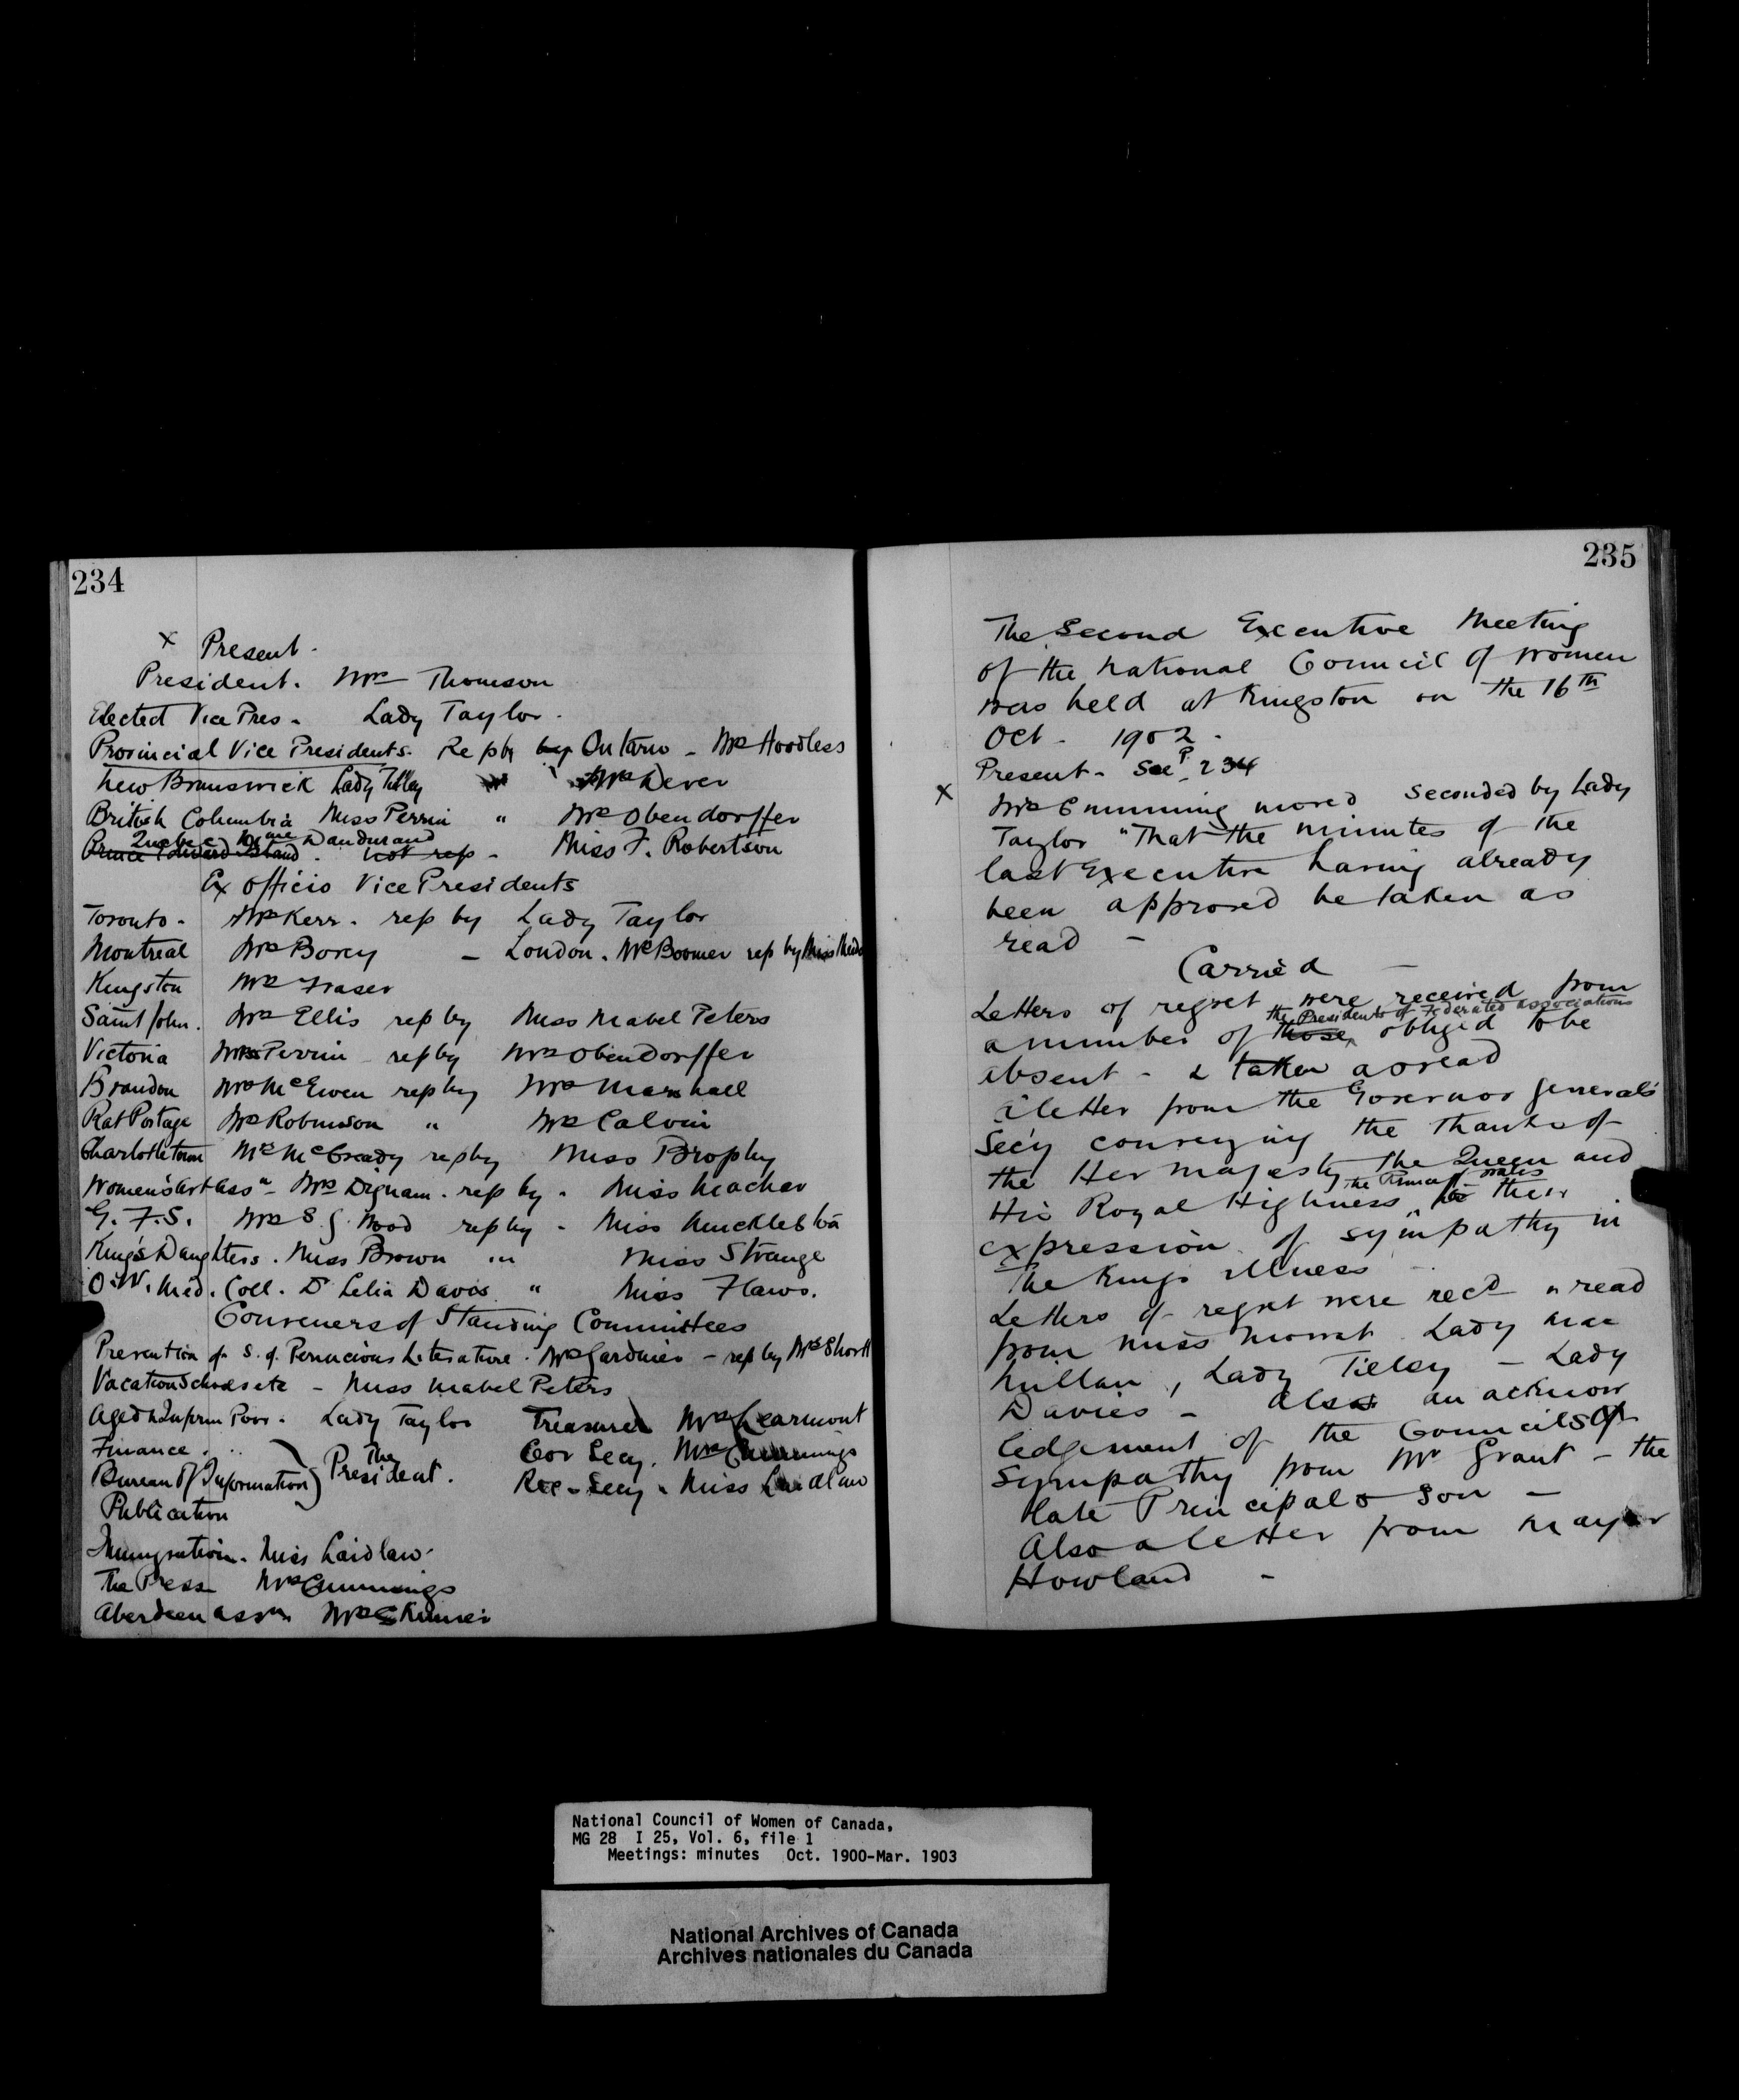 234
x Present.
President. Mrs Thomson
Elected Vice Pres. Lady Taylor.
Provincial Vice Presidents. Rep by by Ontario - Mrs Hoodless
New Brunswick Lady Tilley " Mrs Dever
British Columbia Miss Perrin " Mrs Obendorffer
Quebec Mme Dandurand
Prince Edward Island. not rep - Miss F. Robertson
Ex officio Vice Presidents
Toronto - Mrs Kerr. rep by Lady Taylor
Montreal Mrs Bovey - London. Mrs Boomer rep by Miss
Kingston Mrs Fraser
Saint John. Mrs Ellis rep by Miss Mabel Peters
Victoria Miss Perrin rep by Mrs Obendorffer
Brandon Mrs McEwen rep by Mrs Marshall
Rat Portage Mrs Robinson " Mrs Calvin
Charlottetown Mrs McCready rep by Miss Brophy
Women's Art Assn - Mrs Dignam. rep by. Miss Machar
G. F. S. Mrs S. G. Wood rep by - Miss Muckleston
King's Daughters. Miss Brown " Miss Strange
O. W. Med. Coll. Dr Lelia Davis " Miss Flaws.
Conveners of Standing Committees
Prevention of S. of Pernicious Literature. Mrs Gardiner - rep by Mrs Shortt
Vacation Schools etc - Miss Mabel Peters
Aged & Infirm Poor. Lady Taylor Treasurer Mrs Learmont
Finance. The Cor Secy. Mrs Cummings
Bureau of Information) President. Rec-Secy. Miss Laidlaw
Publication
Immigration. Miss Laidlaw.
The Press Mrs Cummings
Aberdeen Assn Mrs Skinner
235
The Second Executive Meeting
of the National Council of Women
was held at Kingston on the 16th
Oct. 1902.
Present - See P. 234
x Mrs Cumming moved seconded by Lady
Taylor "That the minutes of the
last Executive having already
been approved be taken as
read -
Carried -
Letters of regret were received from
the Presidents of Federated associations
a number of those obliged to be
absent - & taken as read
A letter from the Governor General's
Sec'y conveying the thanks of
the Her Majesty the Queen and
the Prince of Wales
His Royal Highness for their
expression of sympathy in
the King's illness -
Letters of regret were recd & read
from Miss Mowat Lady Mac
Millan, Lady Tilley - Lady
Davies - Also an acknow
ledgement of the Councils
sympathy from Mr Grant - the
late Principal's son -
Also a letter from Mayor
Howland -
National Council of Women of Canada,
MG 28 I 25, Vol. 6, file 1
Meetings: minutes Oct. 1900-Mar. 1903
National Archives of Canada
Archives nationales du Canada